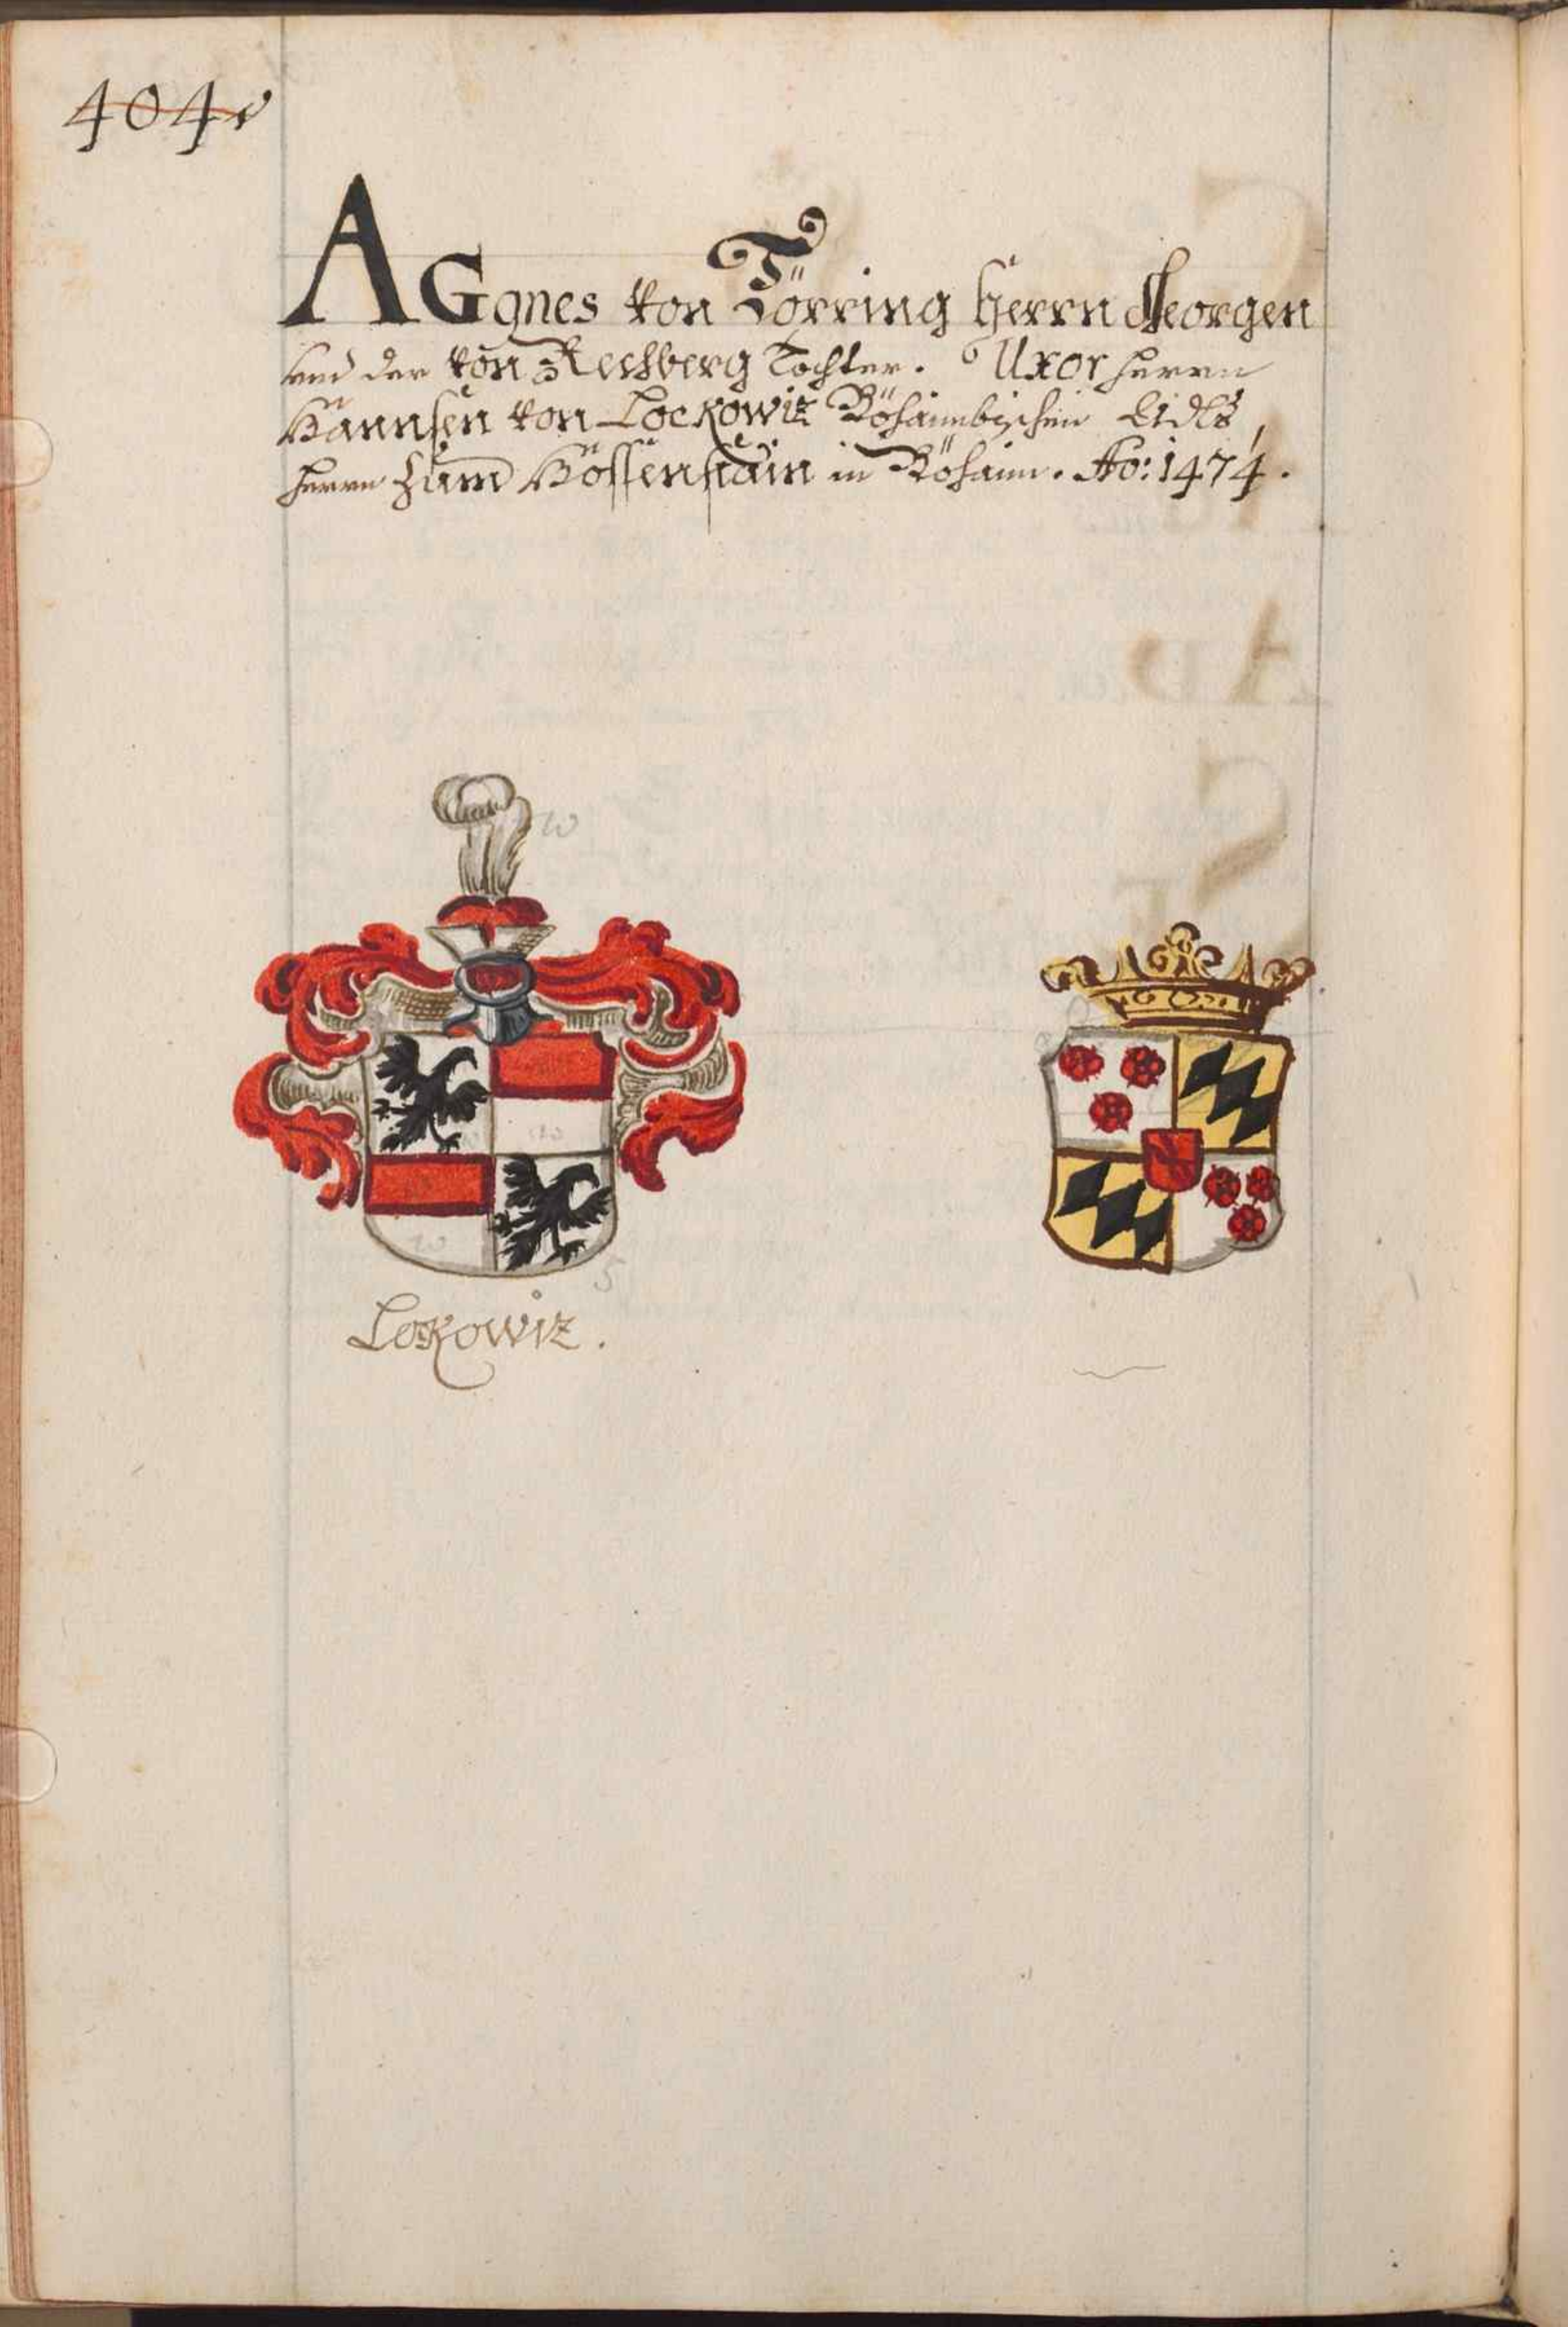 404v
AGgnes von Törring Herrn Georgen
und der von Rechberg Tochter. Uxor Herrn
Hannsen von Lockowiz Böhaimbischen
Herrn zum Hossenstain in Böhaim. Ao: 1474.
w
w
w
S
Lokowiz.